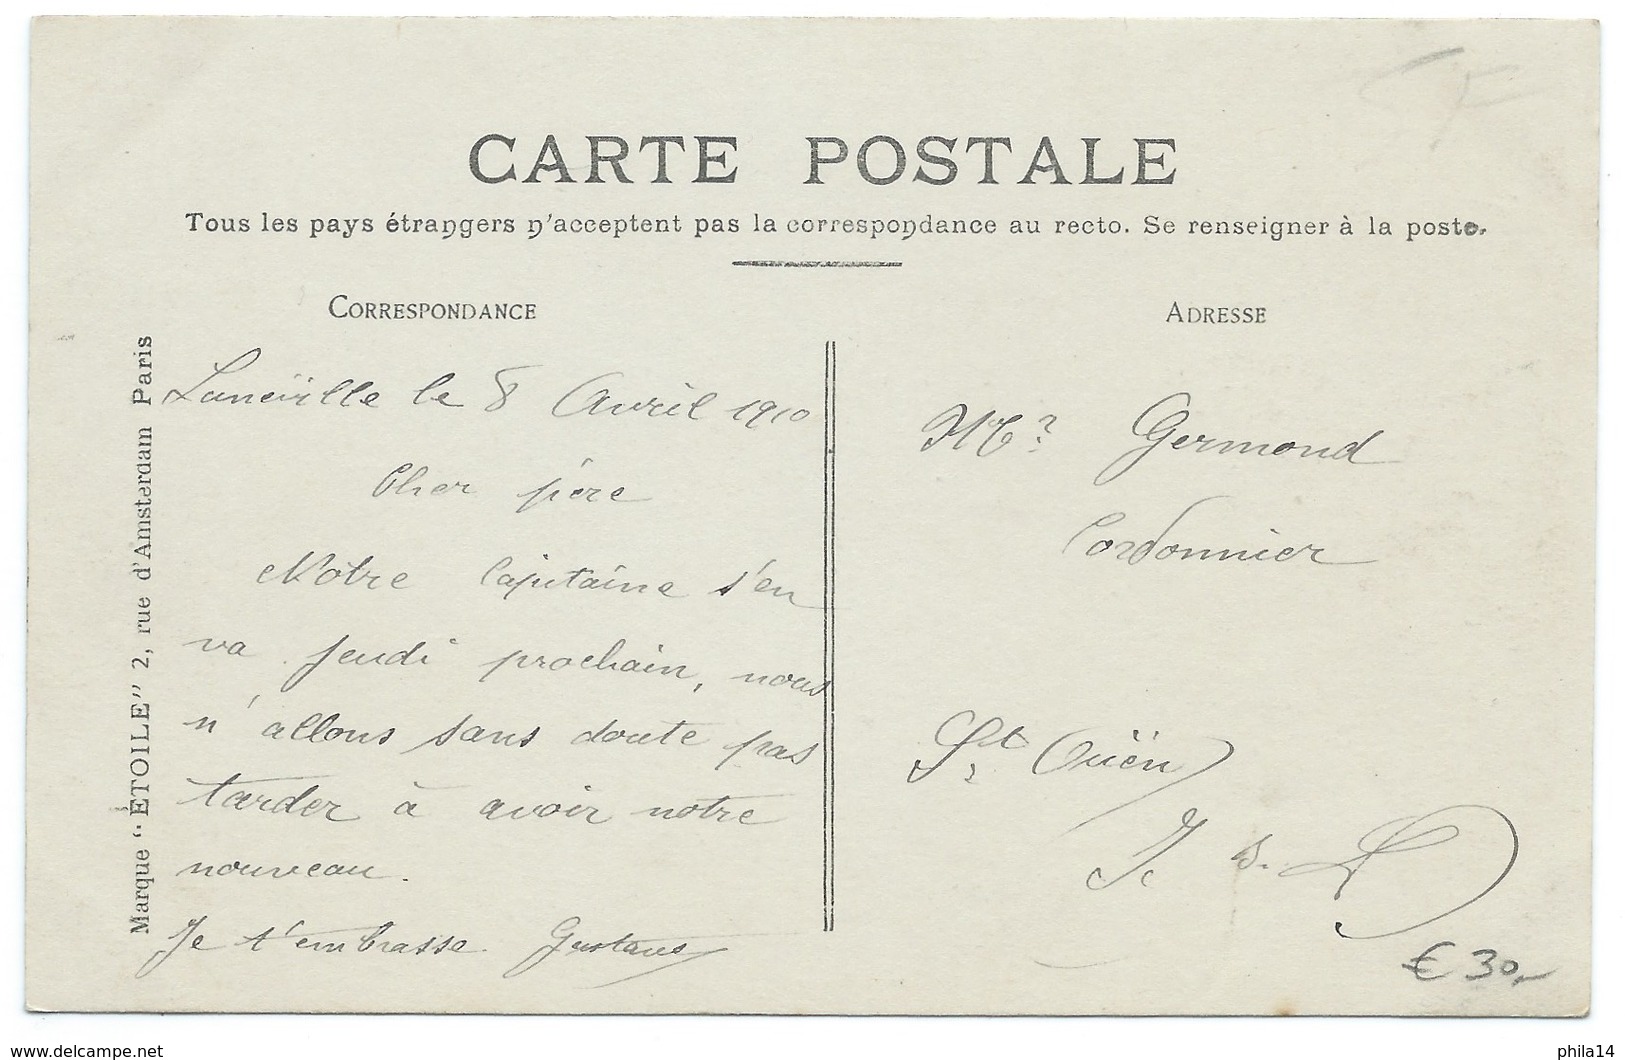 CARTE POSTALE
Tous les pays étrangers n'acceptent pas la correspondance au recto. Se renseigner à la poste.
CORRESPONDANCE
ADRESSE
Marque "ÉTOILE" 2, rue d'Amsterdam Paris
Lunéville le 8 Avril 1910
Cher père
Notre Capitaine s'en
va jeudi prochain, nous
n'allons sans doute pas
tarder à avoir notre
nouveau.
Je t'embrasse. Gustave
Germond
Cordonnier
St Ouën
€ 30,-
www.delcampe.net
phila14